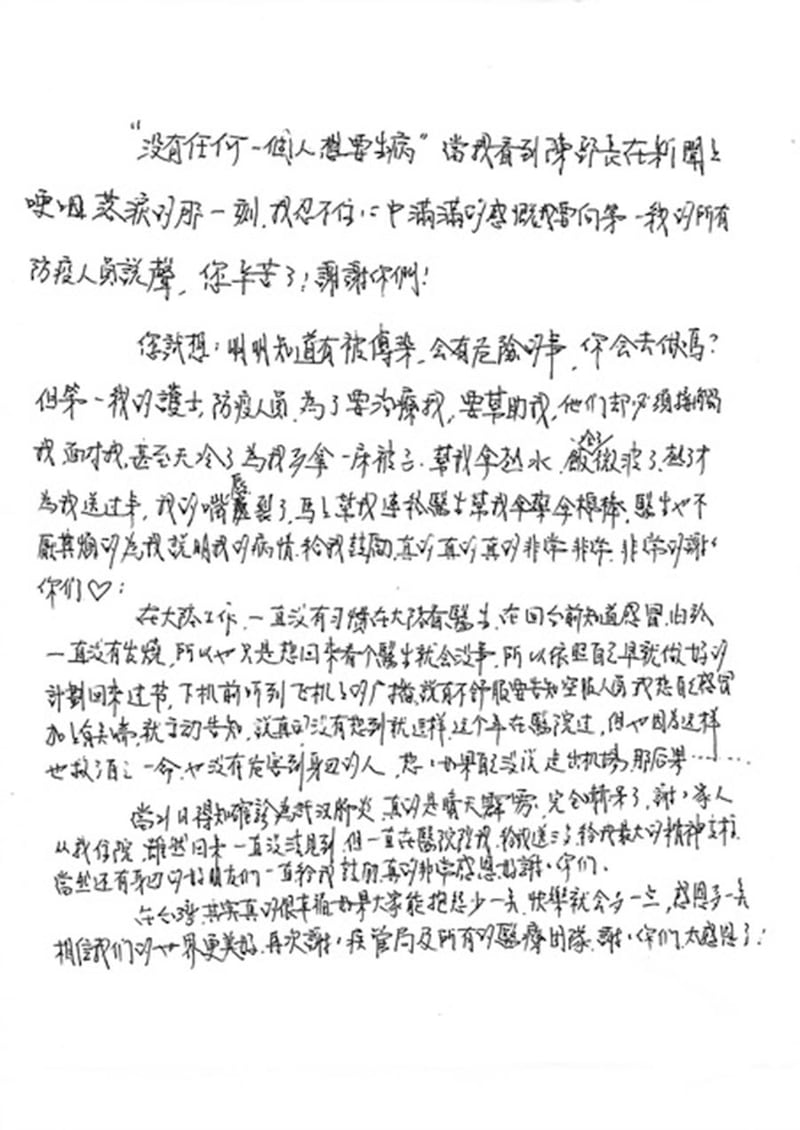 “没有任何一個人想要生病”當我看到陳部長在新聞上
哽咽落淚的那一刻,我忍不住心中滿滿的感慨我要向第一線的所有
防疫人員說聲,你辛苦了!謝謝你們!
您試想:明明知道有被傳染,会有危險的事,你会去做嗎?
但第一線的護士,防疫人員,為了要治療我,要幫助我,他们却必須接觸
我,面对我,甚至天冷了為我多拿一床被子.幫我拿熱水,飯冷了微波了,熱了才
為我送过来,我的嘴唇裂了,馬上幫我連絡醫生幫我拿藥拿棉棒,醫生也不
厭其煩的為我說明我的病情.給我鼓励,真的真的真的非常非常.非常的謝谢
你们♡:
在大陸工作,一直没有习慣在大陸看醫生,在回台前知道感冒,但
一直没有发燒,所以也只是想回来看个醫生就会没事,所以依照自己早就做好的
計劃回来过节,下机前听到飞机上的广播,說有不舒服要告知空服人員,我想自己感冒
就主动告知,說真的没有想到就这样,这个年在醫院过,但也因為这样
也救了自己一命,也没有危害到身边的人,想想如果自己没说走出机場,那后果⋯⋯
當21日得知確診為武汉肺炎,真的是晴天霹靂,完全精呆了,謝谢家人
从我住院,雖然回来一直没法見到,但一直在醫院陪我,給我送三餐,給我最大的精神支柱,
當然还有身边的好朋友们一直給我鼓励,真的非常感恩,好謝谢你们.
在台灣,其实真的很幸福,如果大家能抱怨少一点,快樂就会多一点,感恩多一点
相信我们的世界更美好.再次謝谢疾管局及所有的醫療团隊,謝谢你们,太感恩了!